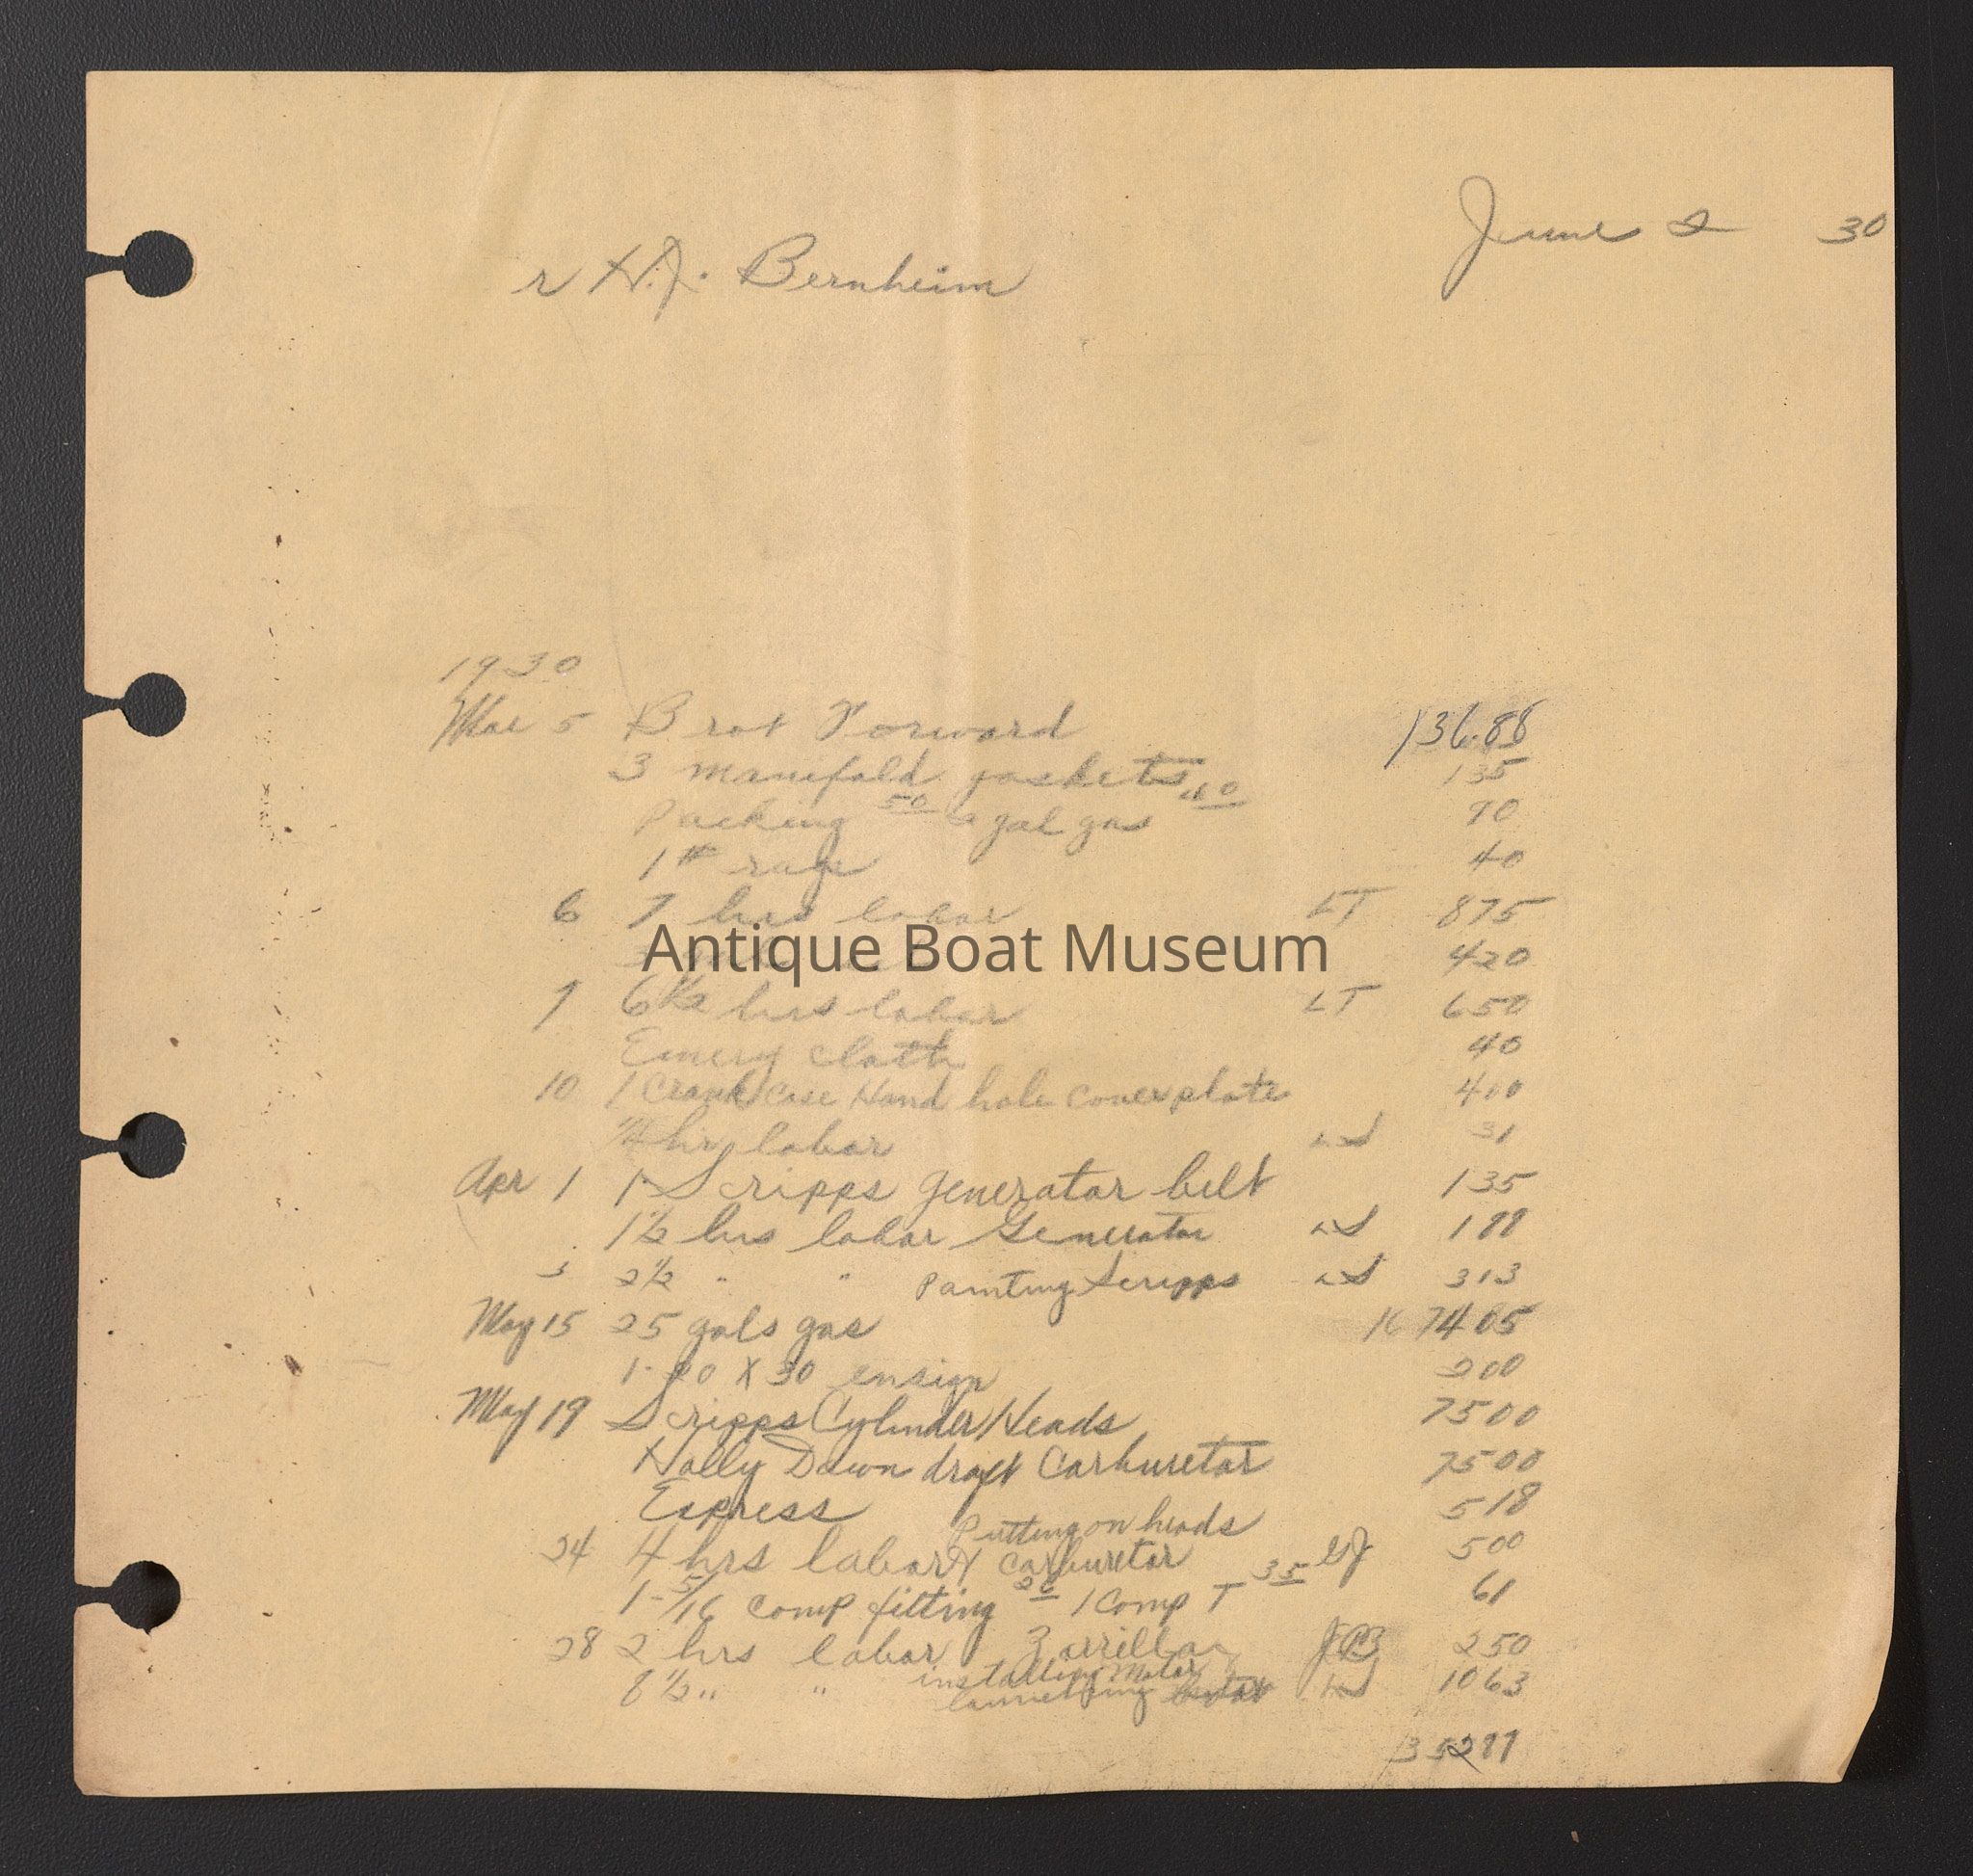 June 2 30
r H.J. Bernheim
1930
Mar 5 Brot Forward 136.88
3 manifold gaskets 135
Packing 50 2 gal gas 40 90
1# rags 40
6 7 hrs labor LT 875
420
Antique Boat Museum
7 6 1/2 hrs labor LT 650
Emery cloth 40
10 1 Crank Case Hand hole cover plate 410
1/4 hr labor LS 31
Apr 1 1 Scripps generator belt 135
1 1/2 hrs labor Generator LS 188
3 2 1/2 " " Painting Scripps LS 313
May 15 25 gals gas 405
1- 20 X 30 ensign 200
May 19 Scripps Cylinder Heads 7500
Holly Down draft Carburetor 7500
Express 518
Putting on heads
24 4 hrs labor & carburetor GJ 500
1- 5/16 comp fitting 26 1 Comp T 35 61
28 2 hrs labor JCB 250
installing Motor
8 1/2 " " launching LS 1063